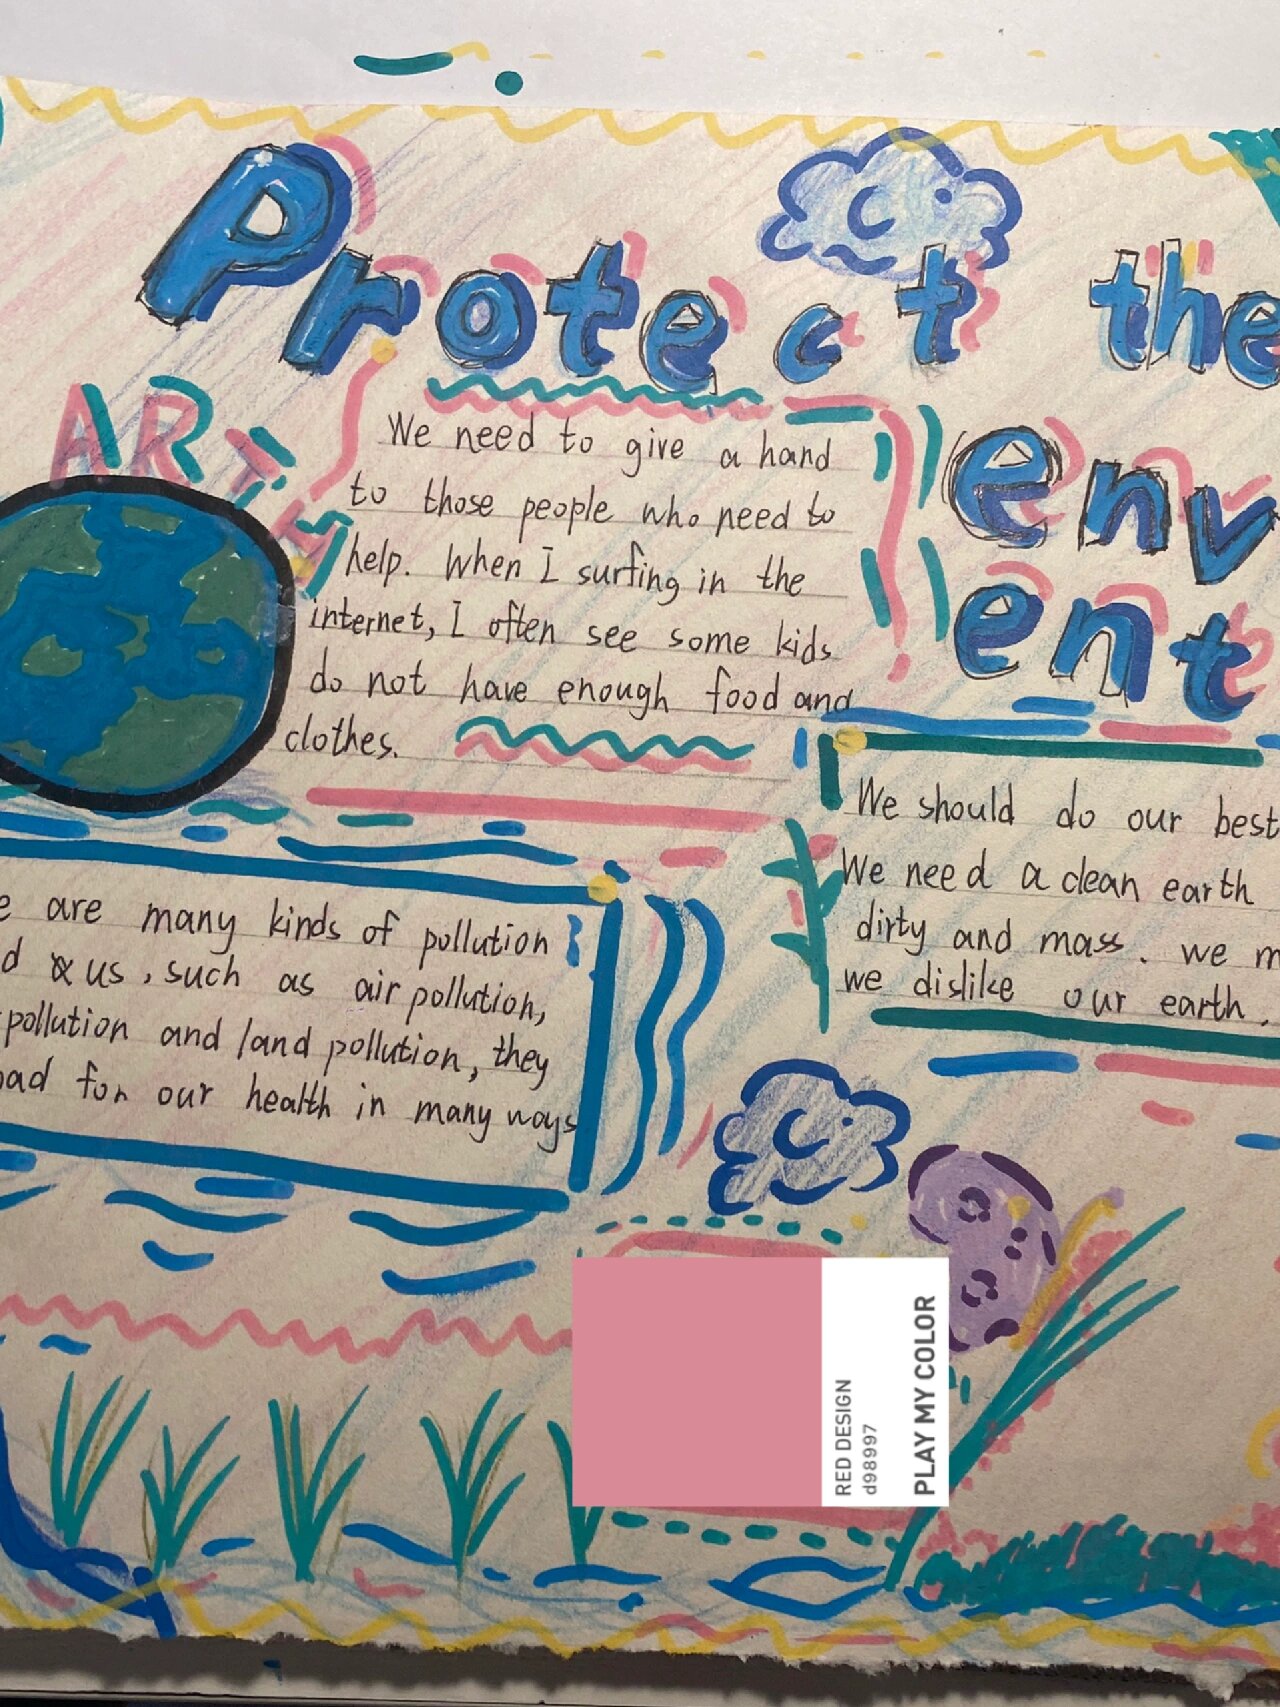 Protect the
env
ent
ARTH
We need to give a hand
to those people who need to
help. When I surfing in the
internet, I often see some kids
do not have enough food and
clothes.
We should do our best
We need a clean earth
dirty and mass. we m
we dislike our earth.
e are many kinds of pollution
d us, such as air pollution,
pollution and land pollution, they
bad for our health in many ways
RED DESIGN
d98997
PLAY MY COLOR